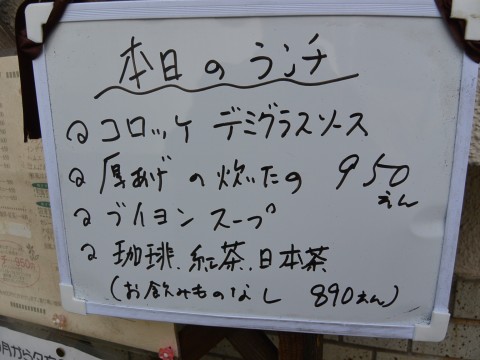 本日のランチ
コロッケ デミグラスソース
厚あげの炊いたの 950えん
ブイヨンスープ
珈琲、紅茶、日本茶
(お飲みものなし 890えん)